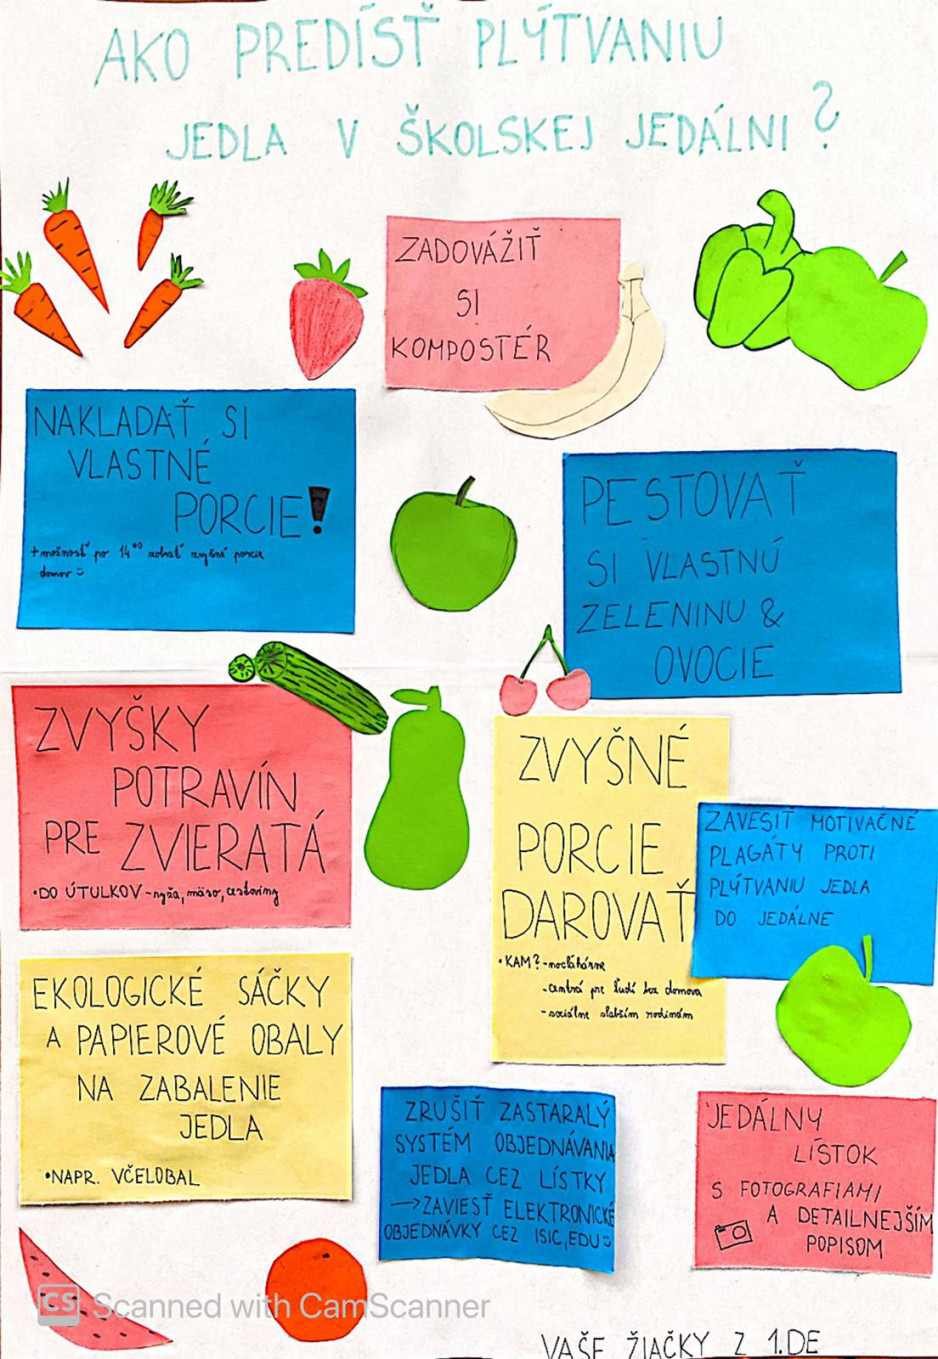 AKO PREDÍSŤ PLÝTVANIU
JEDLA V ŠKOLSKEJ JEDÁLNI?
ZADOVÁŽIŤ
SI
KOMPOSTÉR
NAKLADAŤ SI
VLASTNÉ
PORCIE!
+ možnosť po 14⁰⁰ zobrať zvyšné porcie
domov :)
PESTOVAŤ
SI VLASTNÚ
ZELENINU &
OVOCIE
ZVYŠKY
POTRAVÍN
PRE ZVIERATÁ
•DO ÚTULKOV - ryža, mäso, cestoviny
ZVYŠNÉ
PORCIE
DAROVAŤ
•KAM? - nocľahárne
- centrá pre ľudí bez domova
- sociálne slabším rodinám
ZAVESIŤ MOTIVAČNÉ
PLAGÁTY PROTI
PLÝTVANIU JEDLA
DO JEDÁLNE
EKOLOGICKÉ SÁČKY
A PAPIEROVÉ OBALY
NA ZABALENIE
JEDLA
•NAPR. VČELOBAL
ZRUŠIŤ ZASTARALÝ
SYSTÉM OBJEDNÁVANIA
JEDLA CEZ LÍSTKY
→ZAVIESŤ ELEKTRONICKÉ
OBJEDNÁVKY CEZ ISIC, EDU :)
JEDÁLNY
LÍSTOK
S FOTOGRAFIAMI
A DETAILNEJŠÍM
POPISOM
CS Scanned with CamScanner
VAŠE ŽIAČKY Z 1.DE